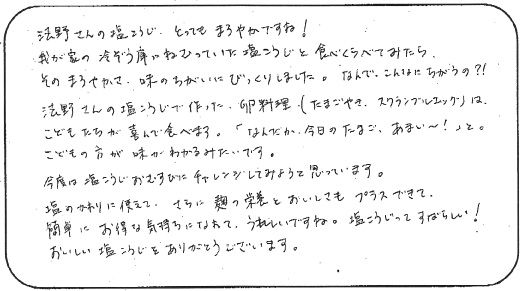 法野さんの塩こうじ、とってもまろやかですね!
我が家の冷ぞう庫にねむっていた塩こうじと食べくらべてみたら、
そのまろやかさ、味のちがいにびっくりしました。なんで、こんなにちがうの?!
法野さんの塩こうじで作った、卵料理(たまごやき、スクランブルエッグ)は、
こどもたちが喜んで食べます。「なんだか、今日のたまご、あまい〜!」と。
こどもの方が味がわかるみたいです。
今度は塩こうじおむすびにチャレンジしてみようと思っています。
塩のかわりに使えて、さらに麹の栄養とおいしさもプラスできて、
簡単にお得な気持ちになれて、うれしいですね。塩こうじってすばらしい!
おいしい塩こうじをありがとうございます。